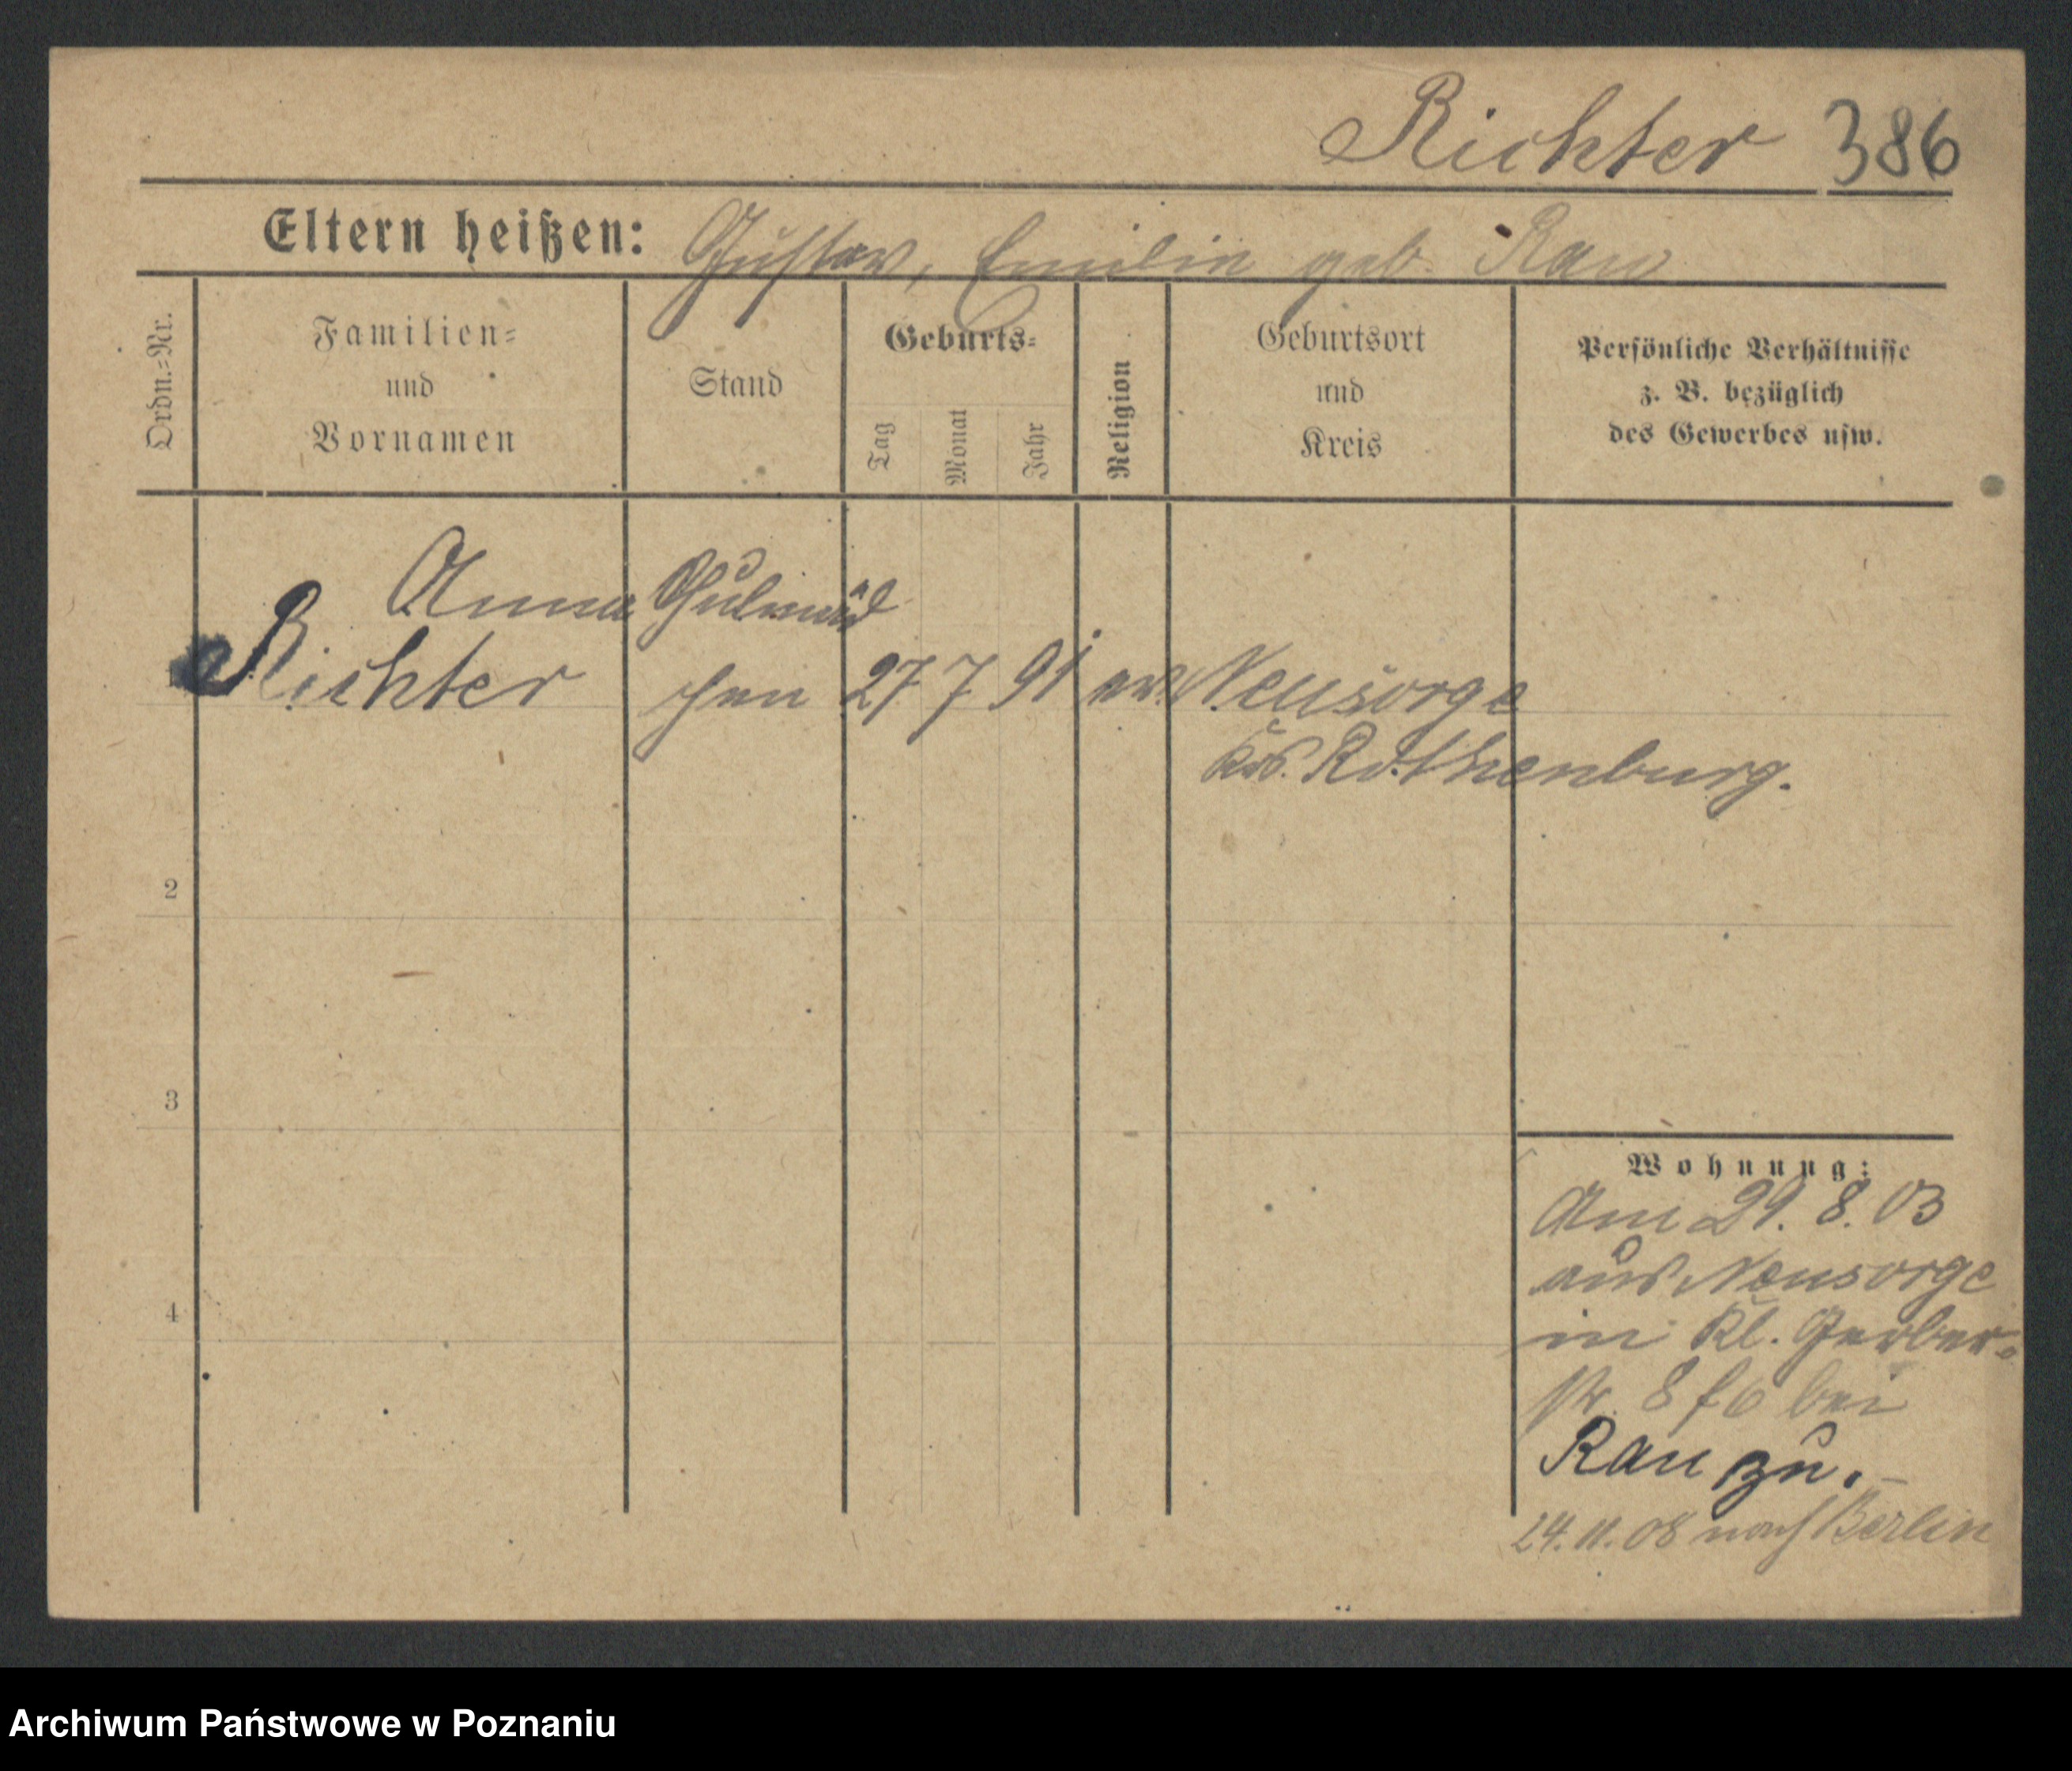 Richter 386
Eltern heißen: Gustav, Emilie geb. Rau
Ordn.=Nr.
Familien=
und
Vornamen
Stand
Geburts=
Tag
Monat
Jahr
Religion
Geburtsort
und
Kreis
Persönliche Verhältnisse
z. B. bezüglich
des Gewerbes usw.
Anna Schulmäd
Richter chen 27 7 91 ev. Neusorge
Krs. Rothenburg.
2
3
4
Wohnung:
Am 29. 8. 03
aus Neusorge
in Kl. Gerber=
str. 8 bei
Rau zu.
24. 11. 08 nach Berlin
Archiwum Państwowe w Poznaniu